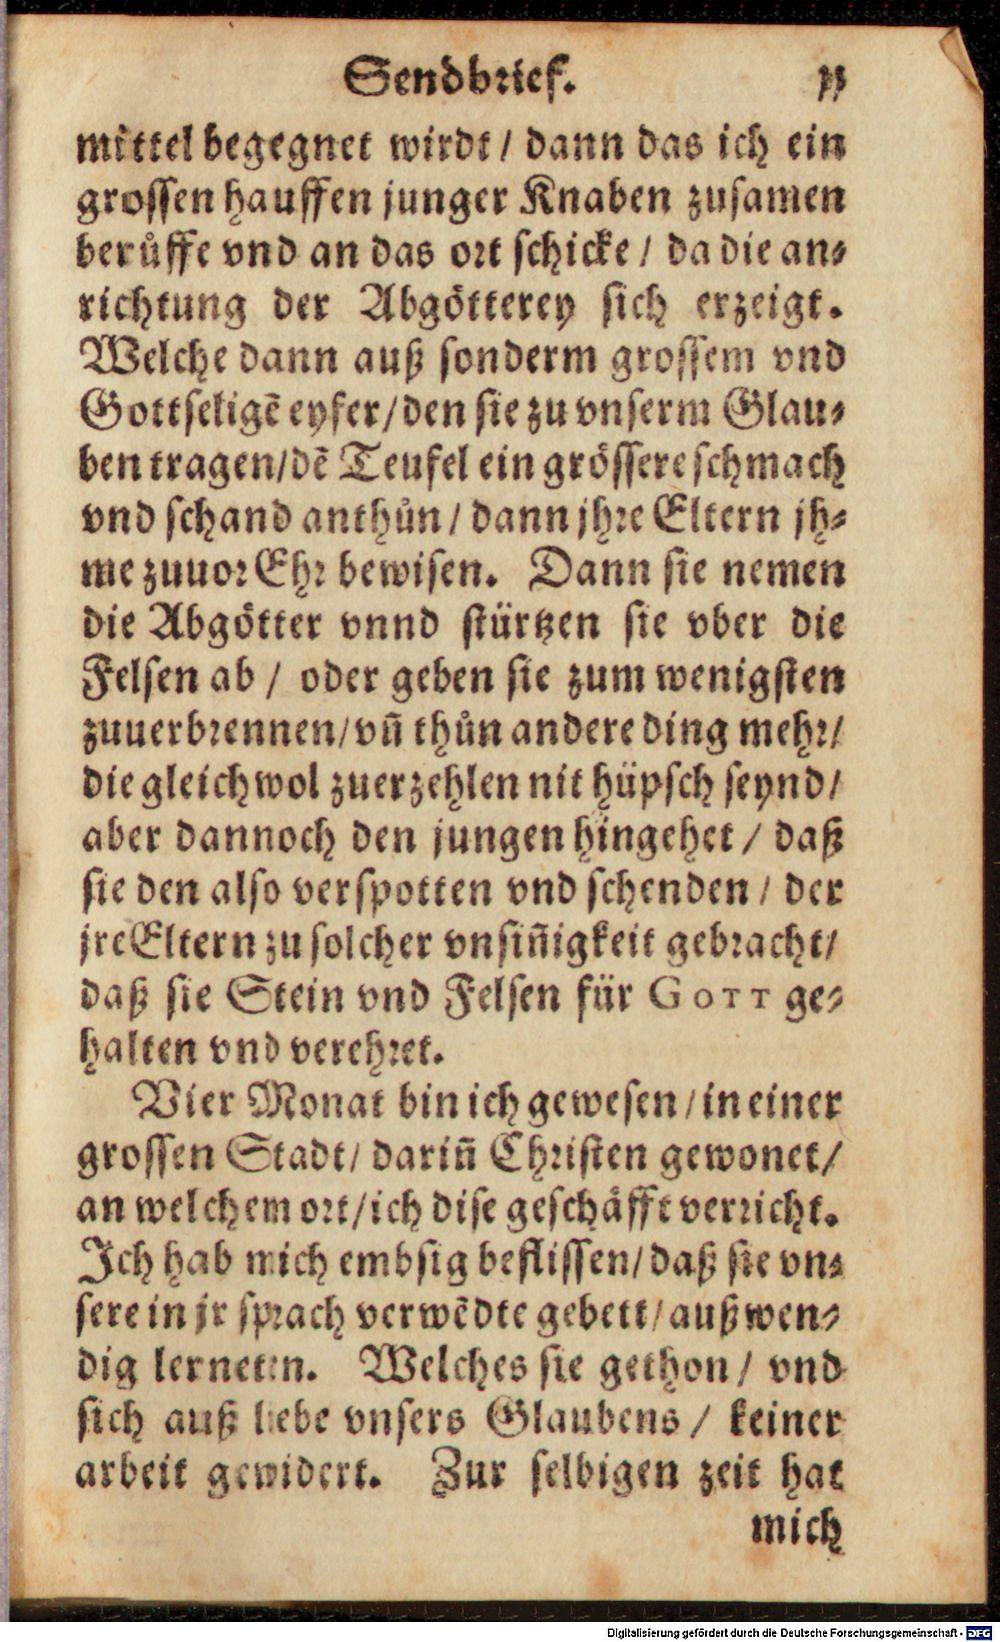 Sendbrief. 11
mittel begegnet wirdt / dann das ich ein
grossen hauffen junger Knaben zusamen
berůffe vnd an das ort schicke / da die an⸗
richtung der Abgötterey sich erzeigt.
Welche dann auß sonderm grossem vnd
Gottseligē eyfer / den sie zu vnserm Glau⸗
ben tragen / dē Teufel ein grössere schmach
vnd schand anthůn / dann jhre Eltern jh⸗
me zuuor Ehr bewisen. Dann sie nemen
die Abgötter vnnd stürtzen sie vber die
Felsen ab / oder geben sie zum wenigsten
zuuerbrennen / vñ thůn andere ding mehr /
die gleichwol zuerzehlen nit hüpsch seynd /
aber dannoch den jungen hingehet / daß
sie den also verspotten vnd schenden / der
jre Eltern zu solcher vnsiñigkeit gebracht /
daß sie Stein vnd Felsen für GOTT ge⸗
halten vnd verehret.
Vier Monat bin ich gewesen / in einer
grossen Stadt / dariñ Christen gewonet /
an welchem ort / ich dise geschäfft verricht.
Ich hab mich embsig beflissen / daß sie vn⸗
sere in jr sprach verwēdte gebett / außwen⸗
dig lerneten. Welches sie gethon / vnd
sich auß liebe vnsers Glaubens / keiner
arbeit gewidert. Zur selbigen zeit hat
mich
Digitalisierung gefördert durch die Deutsche Forschungsgemeinschaft - DFG